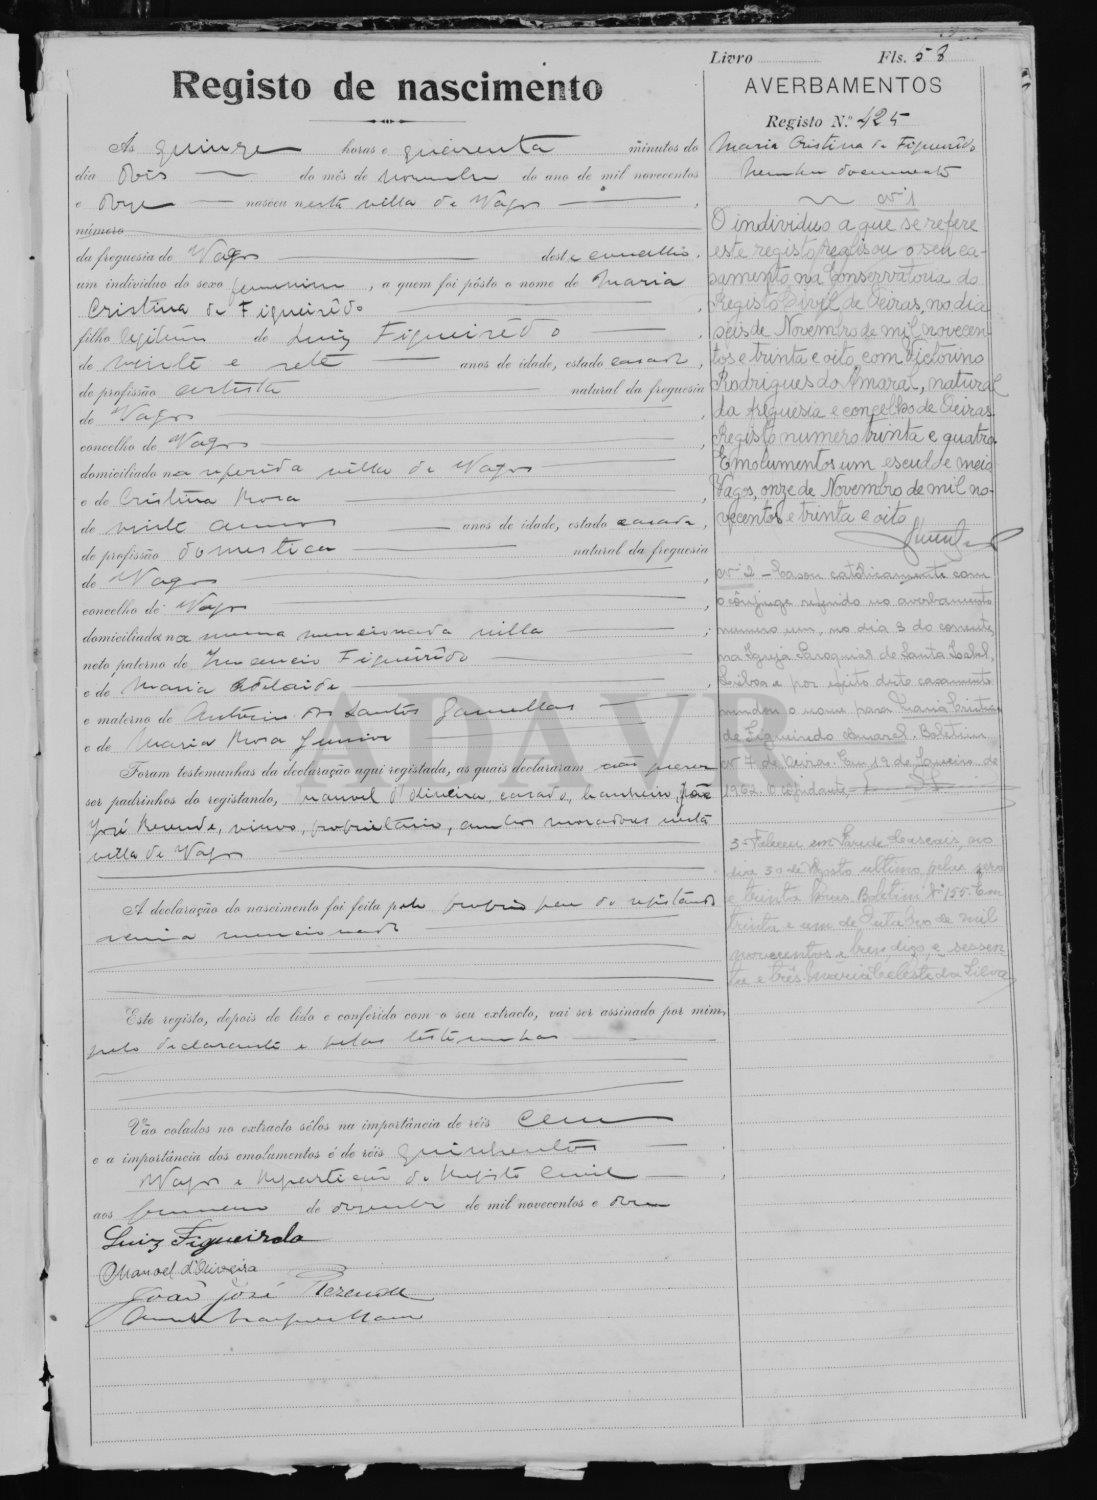 Livro Fls. 58
Registo de nascimento
AVERBAMENTOS
Registo N.º 425
Ás quinze horas e quarenta minutos do
dia dois do mês de novembro do ano de mil novecentos
e doze nasceu nesta villa de Vagos ,
número
da freguesia de Vagos deste concelho,
um indivíduo do sexo feminino, a quem foi pôsto o nome de Maria
Cristina de Figueirêdo ,
filho legitimo de Luiz Figueirêdo ,
de vinte e sete anos de idade, estado casado,
de profissão artista natural da freguesia
de Vagos ,
concelho de Vagos ,
domiciliado na referida villa de Vagos
e de Cristina Rosa ,
de vinte annos anos de idade, estado casada,
de profissão domestica natural da freguesia
de Vagos ,
concelho de Vagos ,
domiciliada na mesma mencionada villa ;
neto paterno de Inocencio Figueirêdo
e de Maria Adelaide ,
e materno de Antonio dos Santos Gamellas
e de Maria Rosa Junior
Foram testemunhas da declaração aqui registada, as quais declararam não querer
ser padrinhos do registando, Manuel d'Oliveira, casado, banheiro, João
José Rezende, viuvo, proprietario, ambos moradores nesta
villa de Vagos
A declaração do nascimento foi feita pelo proprio pae do registando
acima mencionado
Este registo, depois de lido e conferido com o seu extracto, vai ser assinado por mim,
pelo declarante e pelas testemunhas
Vão colados no extracto sêlos na importância de réis cem
e a importância dos emolumentos é de réis quinhentos
Vagos e Repartição do Registo Civil ,
aos primeiro de dezembro de mil novecentos e doze
Luiz Figueirdo
Manoel d'Oliveira
João José Rezende
Maria Cristina de Figueirêdo
Nenhum documento
Nº 1
O individuo a que se refere
este registo realisou o seu ca-
samento na Conservatoria do
Registo Civil de Oeiras, no dia
seis de Novembro de mil novecen-
tos e trinta e oito, com Victorino
Rodrigues do Amaral, natural
da freguesia e concelho de Oeiras.
Registo numero trinta e quatro.
Emolumentos um escudo e meio
Vagos, onze de Novembro de mil no-
vecentos e trinta e oito
Nº 2 – Casou catolicamente com
o cônjuge referido no averbamento
numero um, no dia 3 do corrente,
na Igreja Paroquial de Santa Isabel,
Lisboa e por efeito dêste casamento
mudou o nome para Maria Cristina
de Figueiredo Amaral. Boletim
Nº 7 de Oeiras. Em 19 de Janeiro de
1962. O ajudante
3 – Faleceu em Parede Cascais, no
dia 30 de Agosto ultimo pelas zero
e trinta horas. Boletim Nº 155. Em
trinta e um de Outubro de mil
novecentos e tren, digo, e sessen-
ta e três. Maria Celeste da Silva
ADAVR